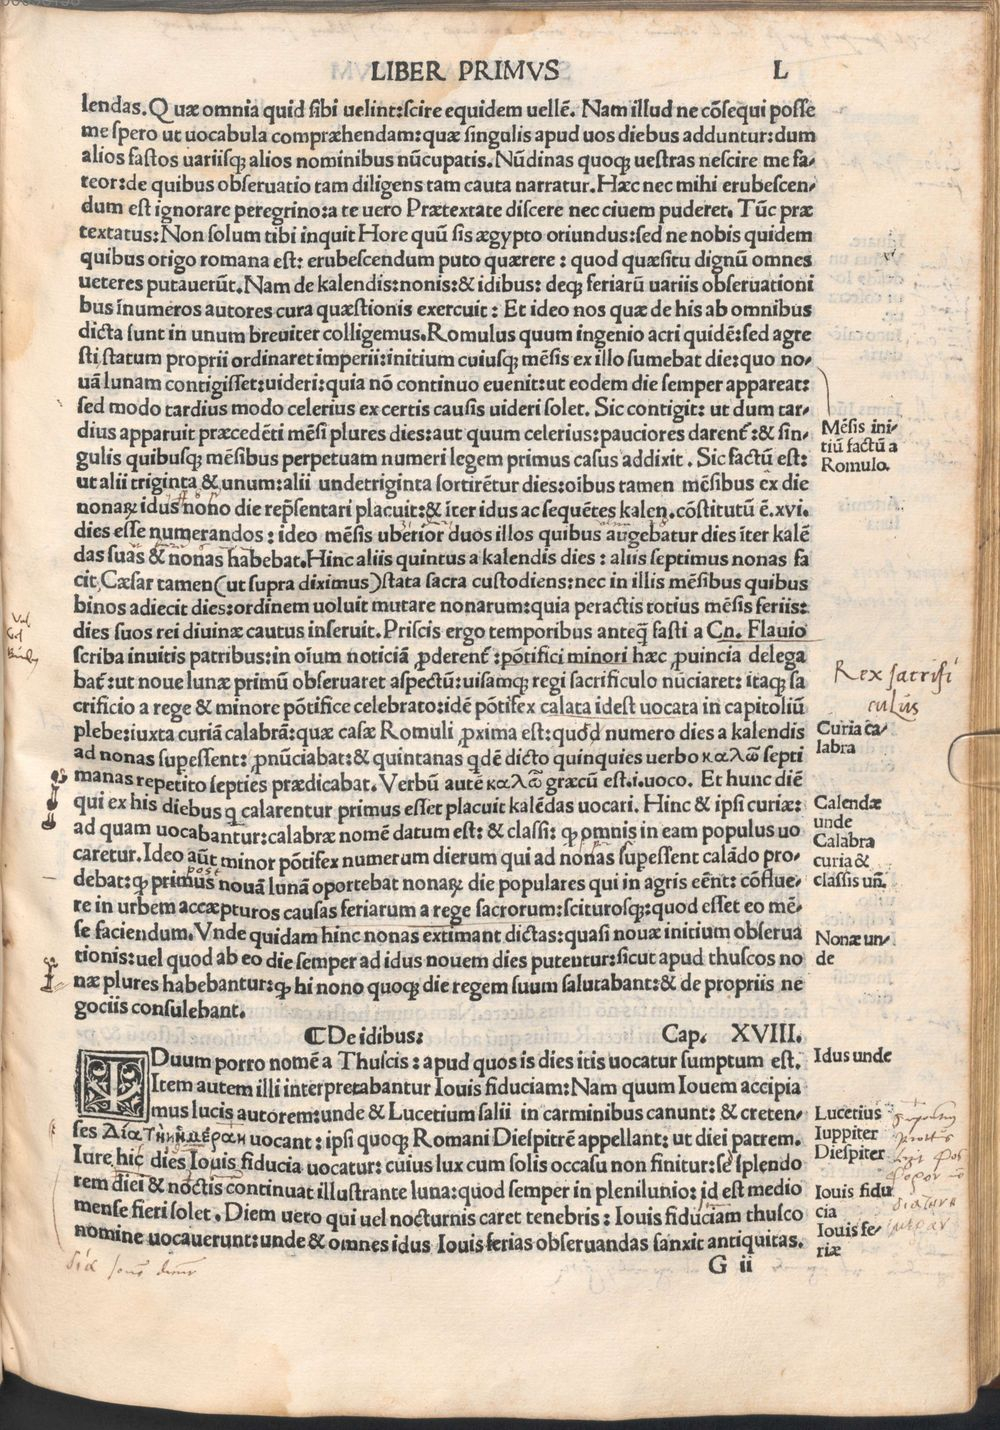 LIBER PRIMVS L
lendas. Quæ omnia quid sibi uelint: scire equidem uellē. Nam illud ne cōsequi posse
me spero ut uocabula compræhendam: quæ singulis apud uos diebus adduntur: dum
alios fastos uariisq; alios nominibus nūcupatis. Nūdinas quoq; uestras nescire me fa-
teor: de quibus obseruatio tam diligens tam cauta narratur. Hæc nec mihi erubescen-
dum est ignorare peregrino: a te uero Prætextate discere nec ciuem puderet. Tūc præ
textatus: Non solum tibi inquit Hore quū sis ægypto oriundus: sed ne nobis quidem
quibus origo romana est: erubescendum puto quærere: quod quæsitu dignū omnes
ueteres putauerūt. Nam de kalendis: nonis: & idibus: deq; feriarū uariis obseruationi
bus inumeros autores cura quæstionis exercuit: Et ideo nos quæ de his ab omnibus
dicta sunt in unum breuiter colligemus. Romulus quum ingenio acri quidē: sed agre
sti statum proprii ordinaret imperii: initium cuiusq; mēsis ex illo sumebat die: quo no-
uā lunam contigisset: uideri: quia nō continuo euenit: ut eodem die semper appareat:
sed modo tardius modo celerius ex certis causis uideri solet. Sic contigit: ut dum tar-
dius apparuit præcedēti mēsi plures dies: aut quum celerius: pauciores darent̄: & sin-
gulis quibusq; mēsibus perpetuam numeri legem primus casus addixit. Sic factū est:
ut alii triginta & unum: alii undetriginta sortirētur dies: oībus tamen mēsibus ex die
nonaꝝ idus nono die rep̄sentari placuit: & īter idus ac sequētes kalen. cōstitutū ē. xvi.
dies esse numerandos: ideo mēsis uberior duos illos quibus augebatur dies īter kalē
das suas & nonas habebat. Hinc aliis quintus a kalendis dies: aliis septimus nonas fa
cit Cæsar tamen (ut supra diximus) stata sacra custodiens: nec in illis mēsibus quibus
binos adiecit dies: ordinem uoluit mutare nonarum: quia peractis totius mēsis feriis:
dies suos rei diuinæ cautus inseruit. Priscis ergo temporibus anteq̄ fasti a Cn. Flauio
scriba inuitis patribus: in oīum noticiā ꝓderent̄: pōtifici minori hæc ꝓuincia delega
bat̄: ut noue lunæ primū obseruaret aspectū: uisamq; regi sacrificulo nūciaret: itaq; sa
crificio a rege & minore pōtifice celebrato: idē pōtifex calata idest uocata in capitoliū
plebe: iuxta curiā calabrā: quæ casæ Romuli ꝓxima est: quod numero dies a kalendis
ad nonas supessent: ꝓnūciabat: & quintanas qdē dicto quinquies uerbo καλῶ septi
manas repetito septies prædicabat. Verbū autē καλῶ græcū est. i. uoco. Et hunc diē
qui ex his diebus q calarentur primus esset placuit kalēdas uocari. Hinc & ipsi curiæ:
ad quam uocabantur: calabræ nomē datum est: & classi: ꝙ omnis in eam populus uo
caretur. Ideo aūt minor pōtifex numerum dierum qui ad nonas supessent calādo pro-
debat: ꝙ primus nouā lunā oportebat nonaꝝ die populares qui in agris eēnt: cōflue-
re in urbem accæpturos causas feriarum a rege sacrorum: sciturosq;: quod esset eo mē-
se faciendum. Vnde quidam hinc nonas extimant dictas: quasi nouæ initium obserua
tionis: uel quod ab eo die semper ad idus nouem dies putentur: sicut apud thuscos no
næ plures habebantur: ꝙ hi nono quoq; die regem suum salutabant: & de propriis ne
gociis consulebant.
Mēsis ini-
tiū factū a
Romulo.
Rex sacrifi
culus
Curia ca-
labra
Calendæ
unde
Calabra
curia &
classis uñ.
Nonæ un-
de
post
⸿De idibus: Cap. XVIII.
IDuum porro nomē a Thuscis: apud quos is dies itis uocatur sumptum est.
Item autem illi interpretabantur Iouis fiduciam: Nam quum Iouem accipia
mus lucis autorem: unde & Lucetium salii in carminibus canunt: & creten-
ses Δία τὴν ἡμέραν uocant: ipsi quoq; Romani Diespitrē appellant: ut diei patrem.
Iure hic dies Iouis fiducia uocatur: cuius lux cum solis occasu non finitur: sē splendo
rem diei & noctis continuat illustrante luna: quod semper in plenilunio: id est medio
mense fieri solet. Diem uero qui uel nocturnis caret tenebris: Iouis fiduciam thusco
nomine uocauerunt: unde & omnes idus Iouis ferias obseruandas sanxit antiquitas.
G ii
Idus unde
Lucetius
Iuppiter
Diespiter
Iouis fidu
cia
Iouis fe-
riæ